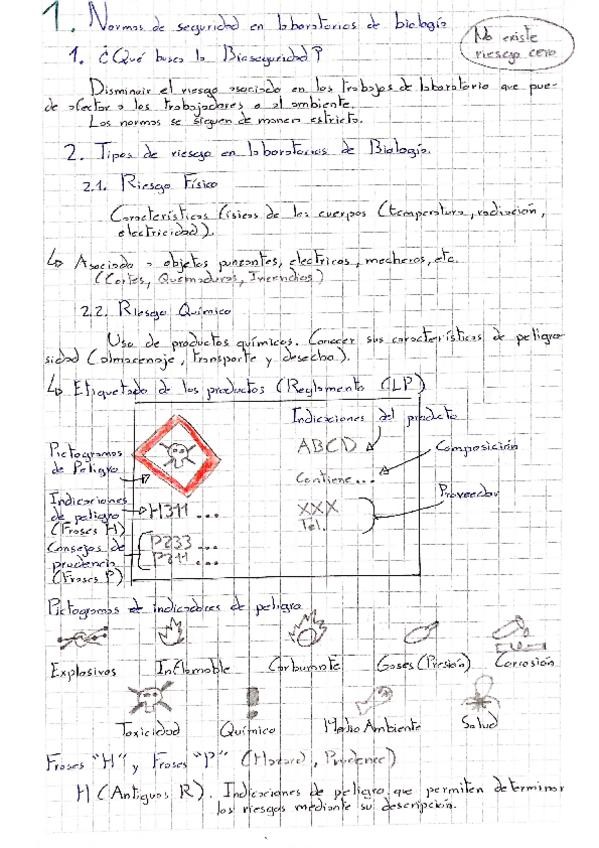 1. Normas de seguridad en laboratorios de biología
No existe
riesgo cero
1. ¿Qué busca la Bioseguridad?
Disminuir el riesgo asociado en los trabajos de laboratorio que pue-
de afectar a los trabajadores o al ambiente.
Las normas se siguen de manera estricta.
2. Tipos de riesgo en laboratorios de Biología.
2.1. Riesgo Físico
Características físicas de los cuerpos (temperatura, radiación,
electricidad).
↳ Asociado a objetos punzantes, electricos, mecheros, etc.
(Cortes, Quemaduras, Incendios)
2.2. Riesgo Químico
Uso de productos químicos. Conocer sus características de peligro-
sidad (almacenaje, transporte y desecho).
↳ Etiquetado de los productos (Reglamento CLP)
Indicaciones del producto
ABCD
Pictogramas
de Peligro
Composición
Contiene...
Proveedor
Indicaciones
de peligro
(Frases H)
H311 ...
XXX
Tel.
Consejos de
prudencia
(Frases P)
P233 ...
P211 ...
Pictogramas de indicadores de peligro
Explosivos Inflamable Carburante Gases (Presión) Corrosión
Toxicidad Químico Medio Ambiente Salud
Frases "H" y Frases "P" (Hazard, Prudence)
H (Antiguas R). Indicaciones de peligro que permiten determinar
los riesgos mediante su descripción.